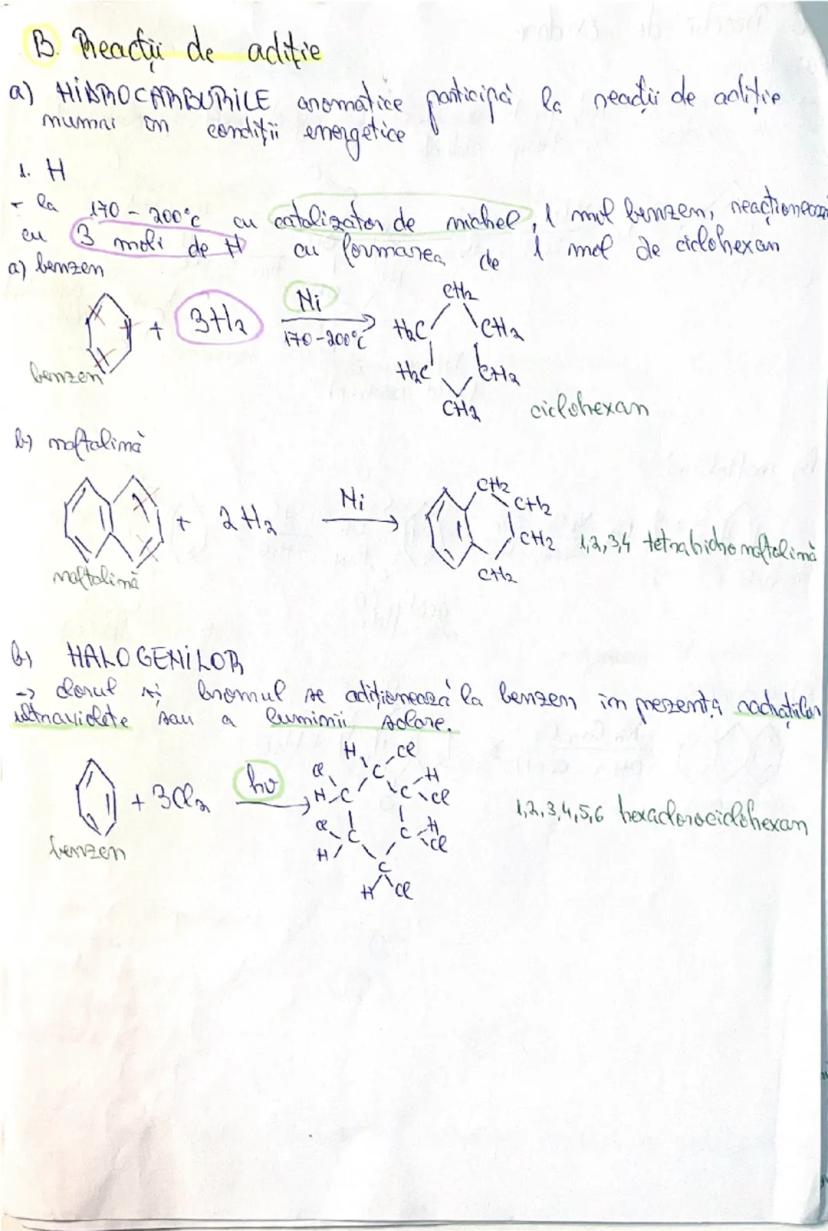 B. Reacții de adiție
a) HIDROCARBURILE aromatice participă la reacții de adiție
numai în condiții energetice
1. H
- la 170 - 200°C cu catalizator de nichel, 1 mol benzen, reacționează
cu 3 moli de H cu formarea de 1 mol de ciclohexan
a) benzen
+ 3H₂ Ni 170-200°C
CH₂
H₂C CH₂
H₂C CH₂
CH₂
benzen ciclohexan
b) naftalină
+ 2H₂ Ni
CH₂
CH₂
CH₂
CH₂
1,2,3,4 tetrahidronaftalină
naftalină
b) HALOGENILOR
-> clorul și bromul se adiționează la benzen în prezența radiațiilor
ultraviolete sau a luminii solare.
+ 3Cl₂ hν
H Cl
Cl C H
H C C Cl
Cl C C H Cl
H C
H Cl
1,2,3,4,5,6 hexaclorociclohexan
benzen